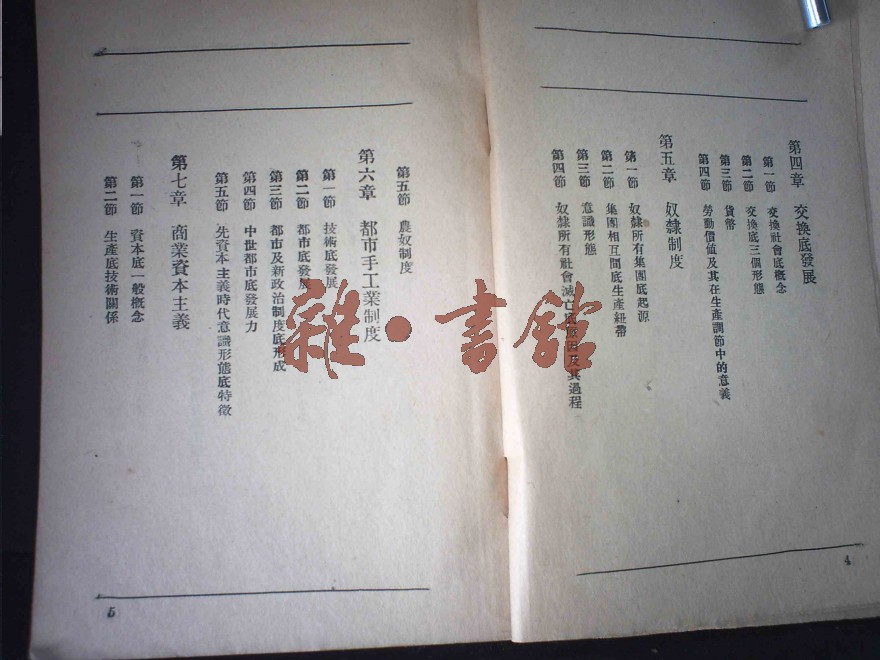 第四章 交換底發展
第一節 交換社會底概念
第二節 交換底三個形態
第三節 貨幣
第四節 勞動價值及其在生產調節中的意義
第五章 奴隸制度
第一節 奴隸所有集團底起源
第二節 集團相互間底生產紐帶
第三節 意識形態
第四節 奴隸所有社會滅亡底原因及其過程
4
第五節 農奴制度
第六章 都市手工業制度
第一節 技術底發展
第二節 都市底發展
第三節 都市及新政治制度底形成
第四節 中世都市底發展力
第五節 先資本主義時代意識形態底特徵
第七章 商業資本主義
第一節 資本底一般概念
第二節 生產底技術關係
5
雜·書館